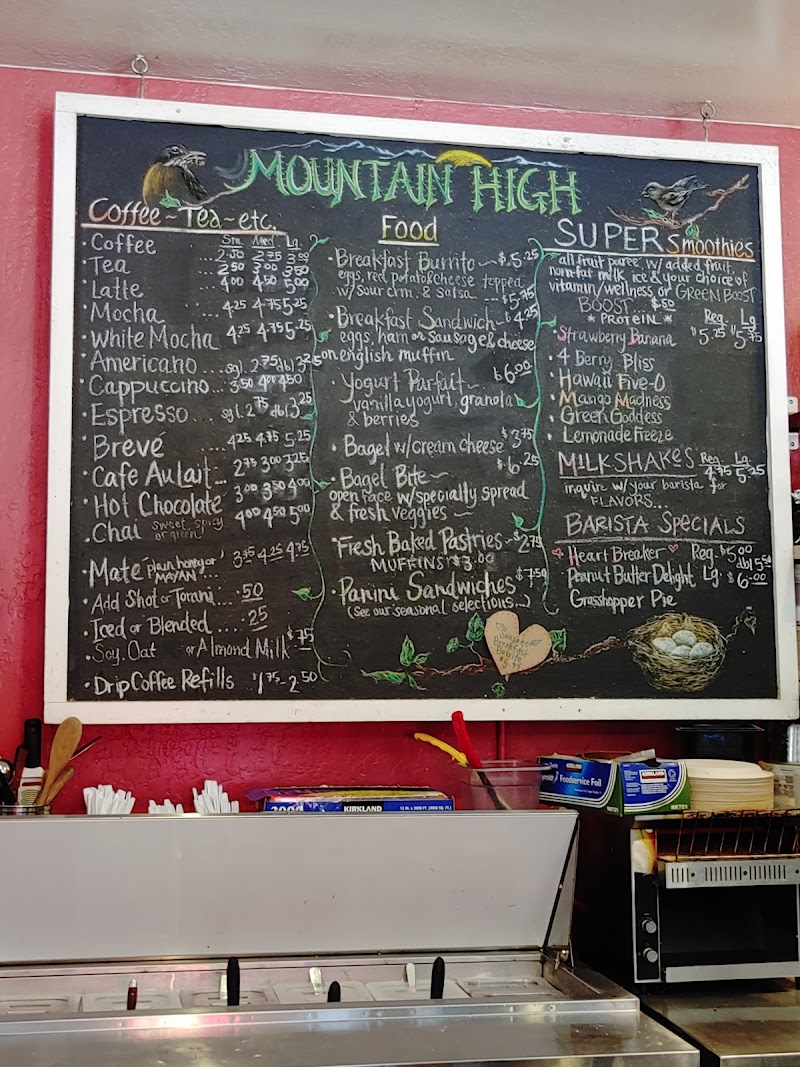 MOUNTAIN HIGH
Coffee ~ Tea ~ etc.
Sm. Med. Lg.
• Coffee ... 2.50 2.75 3.50
• Tea 2.50 3.00 3.50
• Latte 4.00 4.50 5.00
• Mocha ... 4.25 4.75 5.25
• White Mocha 4.25 4.75 5.25
• Americano ... sgl. 2.75 dbl 3.25
• Cappuccino .. 3.50 4.00 4.50
• Espresso ... sgl. 2.75 dbl 3.25
• Brevé 4.25 4.75 5.25
• Cafe Au lait .. 2.75 3.00 3.25
• Hot Chocolate 3.00 3.50 4.00
• Chai sweet, spicy or green! 4.00 4.50 5.00
• Mate plain, honey or MAYAN ...! 3.75 4.25 4.75
• Add Shot or Torani ... .50
• Iced or Blended .... .25
• Soy, Oat or Almond Milk $.75
• Drip Coffee Refills $1.75 - 2.50
Food
• Breakfast Burrito ~ $5.25
eggs, red potato & cheese topped
w/ sour crm. & salsa ... $5.75
• Breakfast Sandwich ~ $4.25
eggs, ham or sausage & cheese
on english muffin
• Yogurt Parfait ~ $6.00
vanilla yogurt, granola
& berries
• Bagel w/ cream cheese $3.75
• Bagel Bite ~ $6.25
open face w/ specially spread
& fresh veggies ~
• Fresh Baked Pastries - $2.75
MUFFINS $3.00
• Panini Sandwiches $7.50
(see our seasonal selections...)
Sausage
Breakfast
SUPER Smoothies
all fruit puree w/ added fruit,
non-fat milk, ice & your choice of
vitamin/wellness or GREEN BOOST
BOOST $.50
* PROTEIN * Reg. Lg.
• Strawberry Banana $5.25 $5.75
• 4 Berry Bliss
• Hawaii Five-O
• Mango Madness
• Green Goddess
• Lemonade Freeze
MILKSHAKES Reg. Lg.
4.75 5.25
inquire w/ your barista for
FLAVORS...
BARISTA SPECIALS
Heart Breaker Reg. $5.00
dbl 5.50
• Peanut Butter Delight Lg. $6.00
Grasshopper Pie
KIRKLAND
Foodservice Foil
KIRKLAND